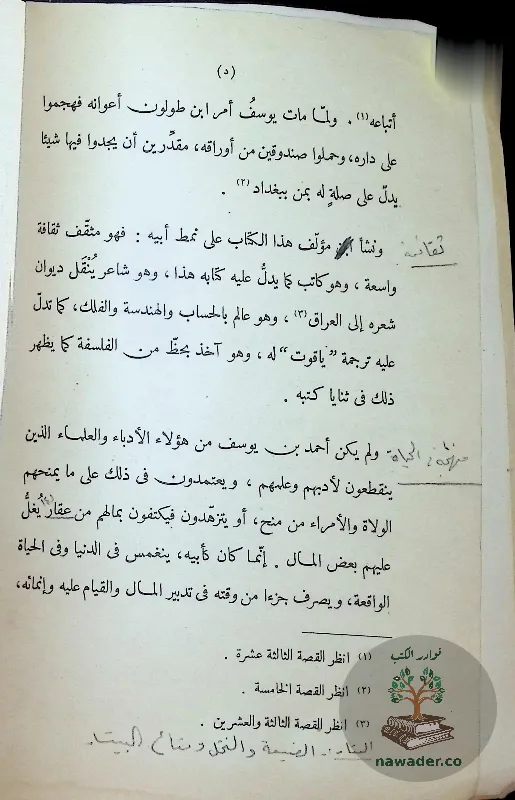 (د)
أتباعه(١) . ولمّا مات يوسفُ أمر ابن طولون أعوانه فهجموا
على داره، وحملوا صندوقين من أوراقه، مقدِّرين أن يجدوا فيها شيئا
يدلّ على صلةٍ له بمن ببغداد(٢) .
ونشأ مؤلّف هذا الكتاب على نمط أبيه : فهو مثقّف ثقافة
ثقافته
واسعة ، وهو كاتب كما يدلُّ عليه كتابه هذا ، وهو شاعر يُنْقَل ديوان
شعره إلى العراق(٣) ، وهو عالم بالحساب والهندسة والفلك، كما تدلّ
عليه ترجمة ”ياقوت“ له ، وهو آخذ بحظّ من الفلسفة كما يظهر
ذلك فى ثنايا كتبه .
ولم يكن أحمد بن يوسف من هؤلاء الأدباء والعلماء الذين
فى الحياة
ينقطعون لأدبهم وعلمهم ، ويعتمدون فى ذلك على ما يمنحهم
الولاة والأمراء من منح، أو يتزهّدون فيكتفون بمالهم من عقار يُغلُّ
عليهم بعض المال . إنّما كان كأبيه، ينغمس فى الدنيا وفى الحياة
الواقعة، ويصرف جزءا من وقته فى تدبير المال والقيام عليه وإنمائه،
(١) انظر القصة الثالثة عشرة .
(٢) انظر القصة الخامسة .
(٣) انظر القصة الثالثة والعشرين .
الضيعة والنخل ومتاع البيت
نوادر الكتب
nawader.co